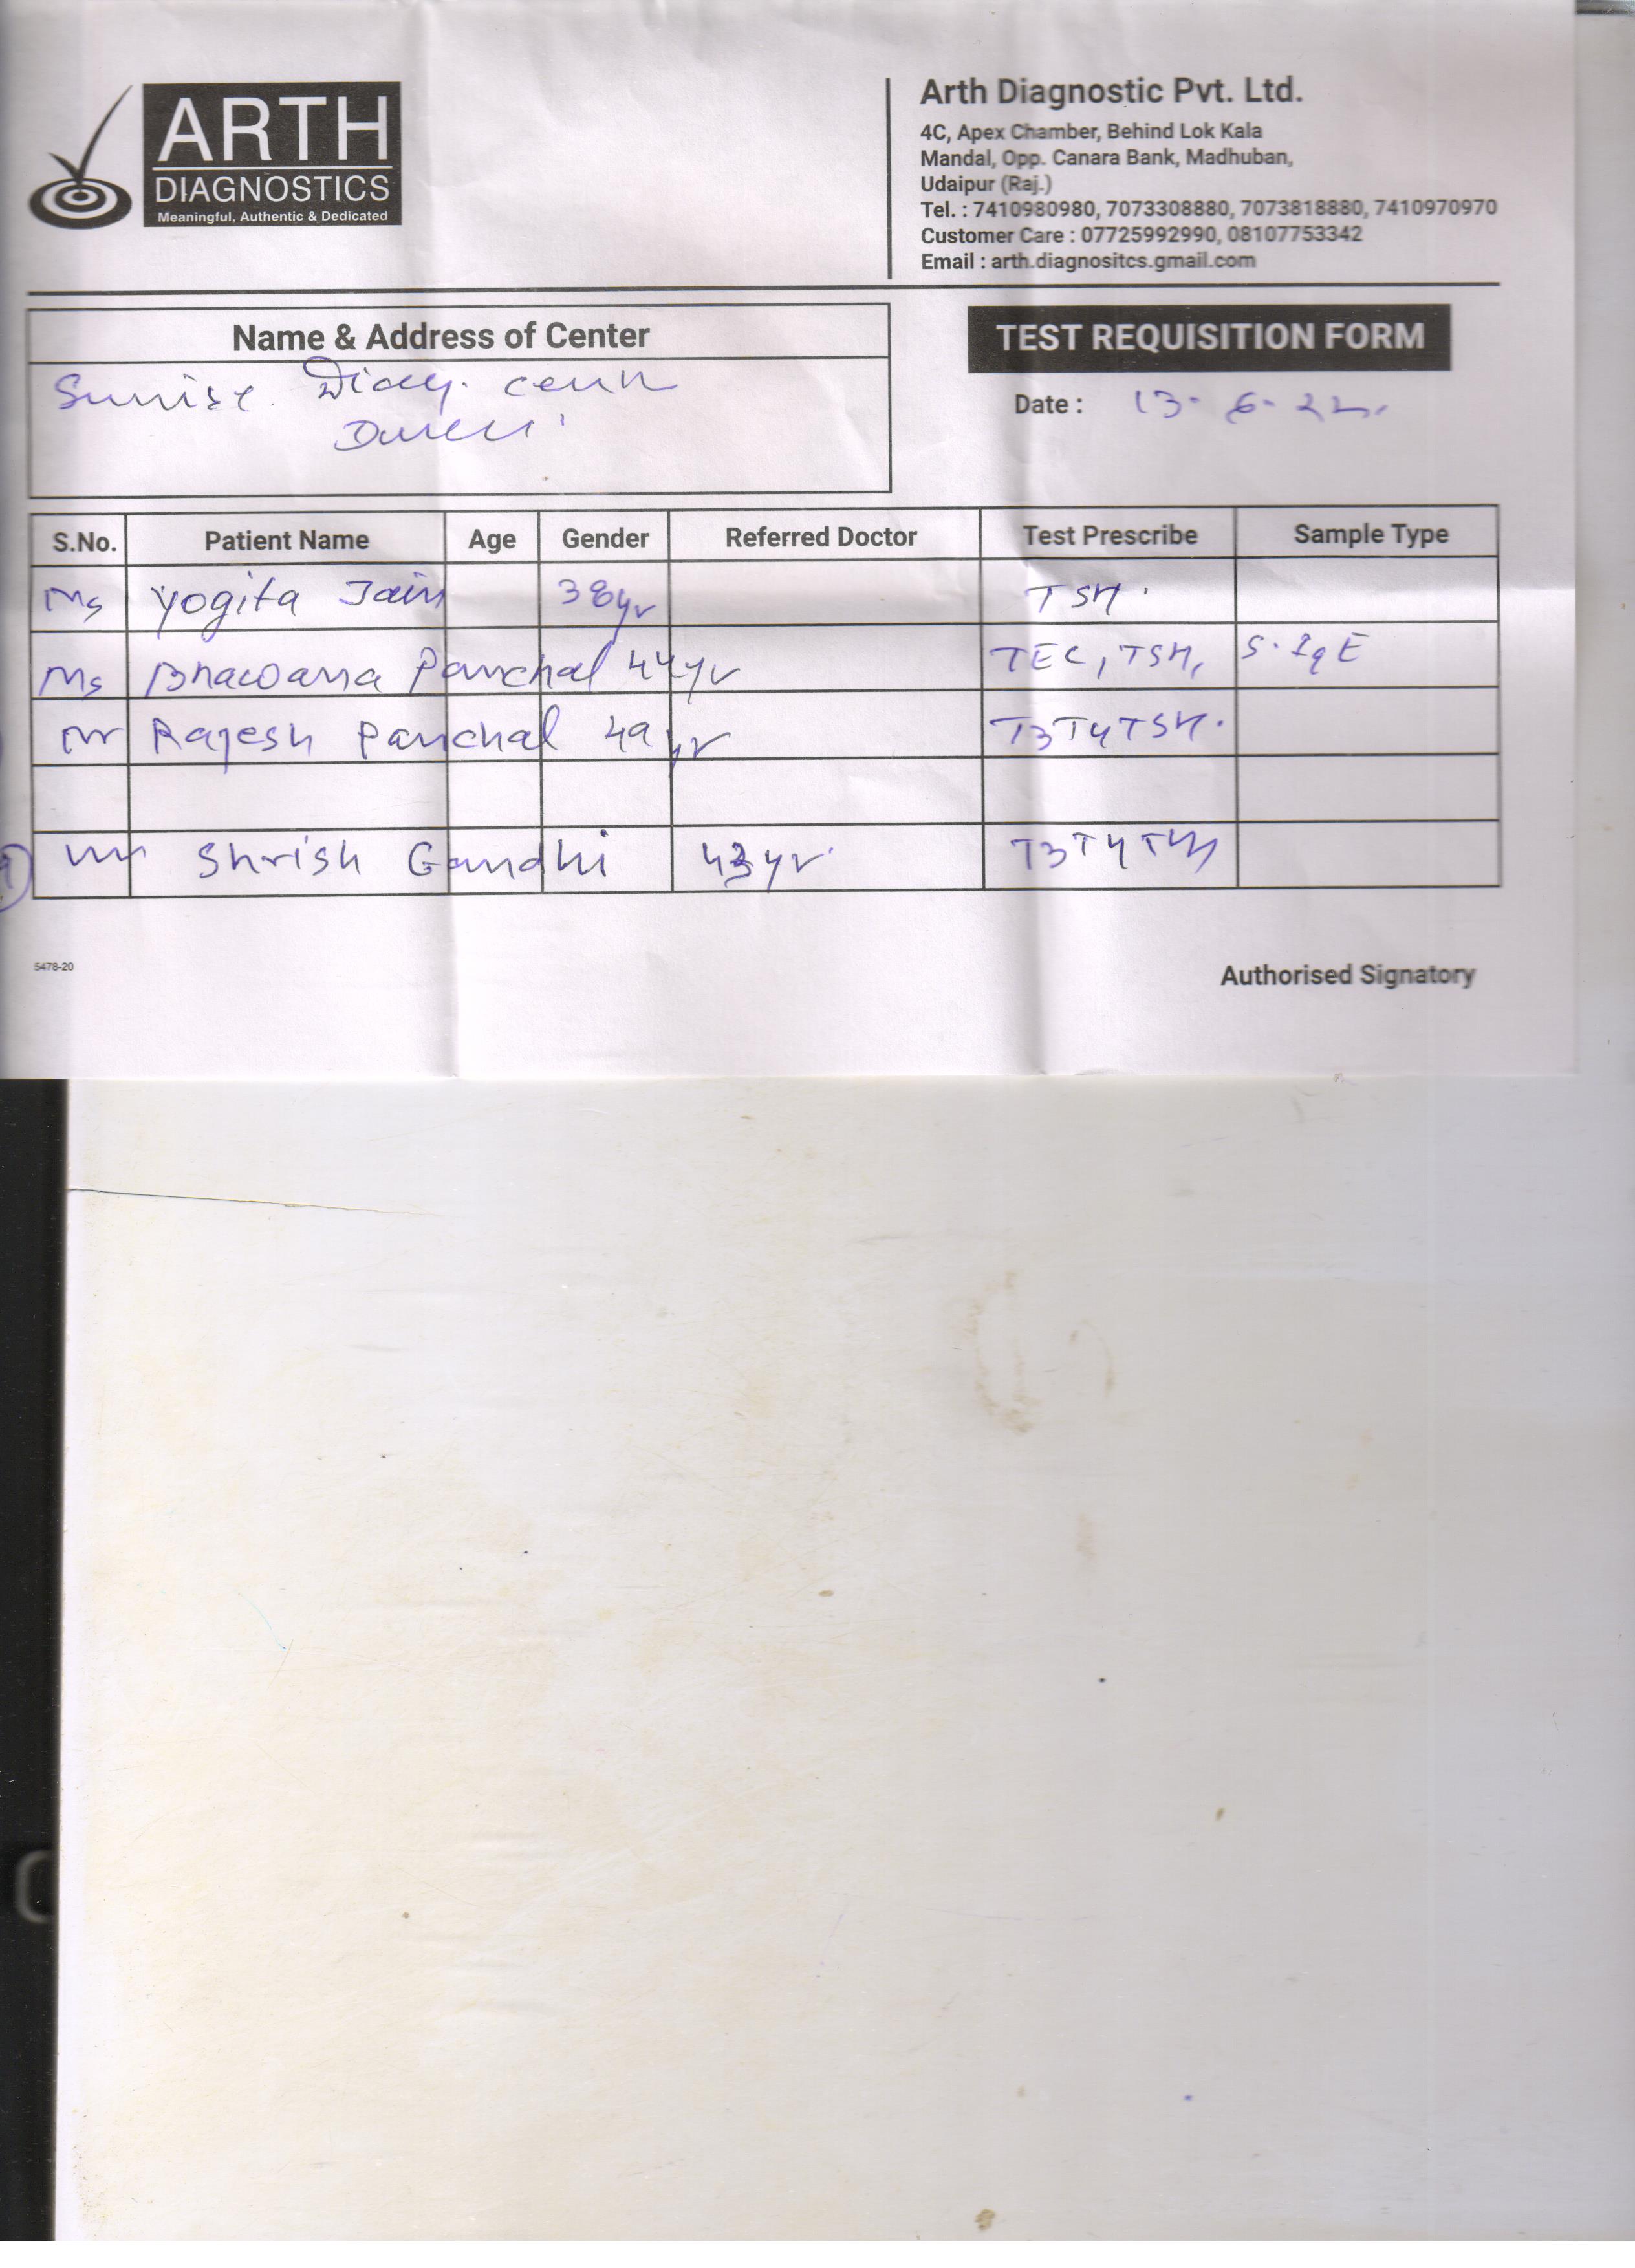 ARTH
DIAGNOSTICS
Meaningful, Authentic & Dedicated
Arth Diagnostic Pvt. Ltd.
4C, Apex Chamber, Behind Lok Kala
Mandal, Opp. Canara Bank, Madhuban,
Udaipur (Raj.)
Tel. : 7410980980, 7073308880, 7073818880, 7410970970
Customer Care : 07725992990, 08107753342
Email : arth.diagnositcs.gmail.com
Name & Address of Center
Sunrise Diag.
TEST REQUISITION FORM
Date : 13-6-22
S.No. Patient Name Age Gender Referred Doctor Test Prescribe Sample Type
Ms Yogita Jain 38yr TSH.
Ms Bhawana Panchal 44yr TEC, TSH, S.IgE
Mr Rajesh Panchal 49 yr T3T4TSH.
Mr Shrish Gandhi 43yr T3T4TSH
5478-20
Authorised Signatory